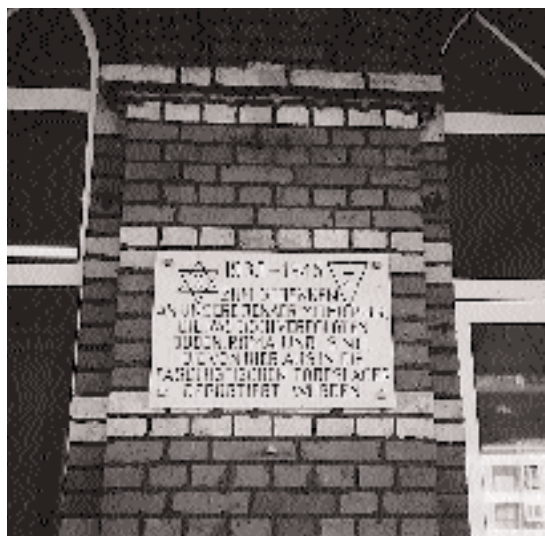 1933-1945
ZUM GEDENKEN
AN UNSERE JENAER MITBÜRGER,
DIE ALS
JUDEN, ROMA UND SINTI
DIE VON HIER AUS IN DIE
FASCHISTISCHEN TODESLAGER
DEPORTIERT WURDEN